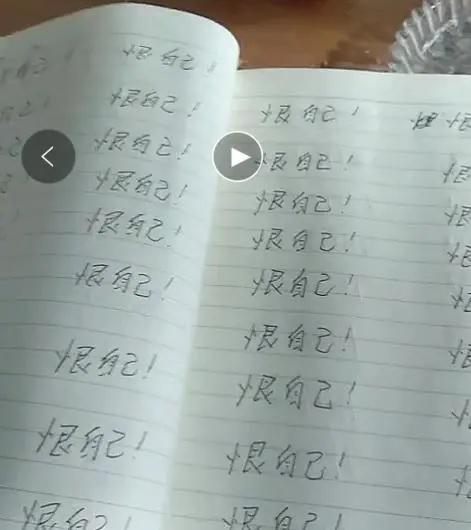 自己! 恨自己!
己! 恨自己!
己 恨自己!
恨自己!
恨自己!
恨自己!
恨自己!
恨自己!
恨自己!
恨自己! 恨
恨自己! 恨
恨自己! 恨
恨自己! 恨
恨自己! 恨
恨自己! 恨
恨自己!
恨自己!
恨自己!